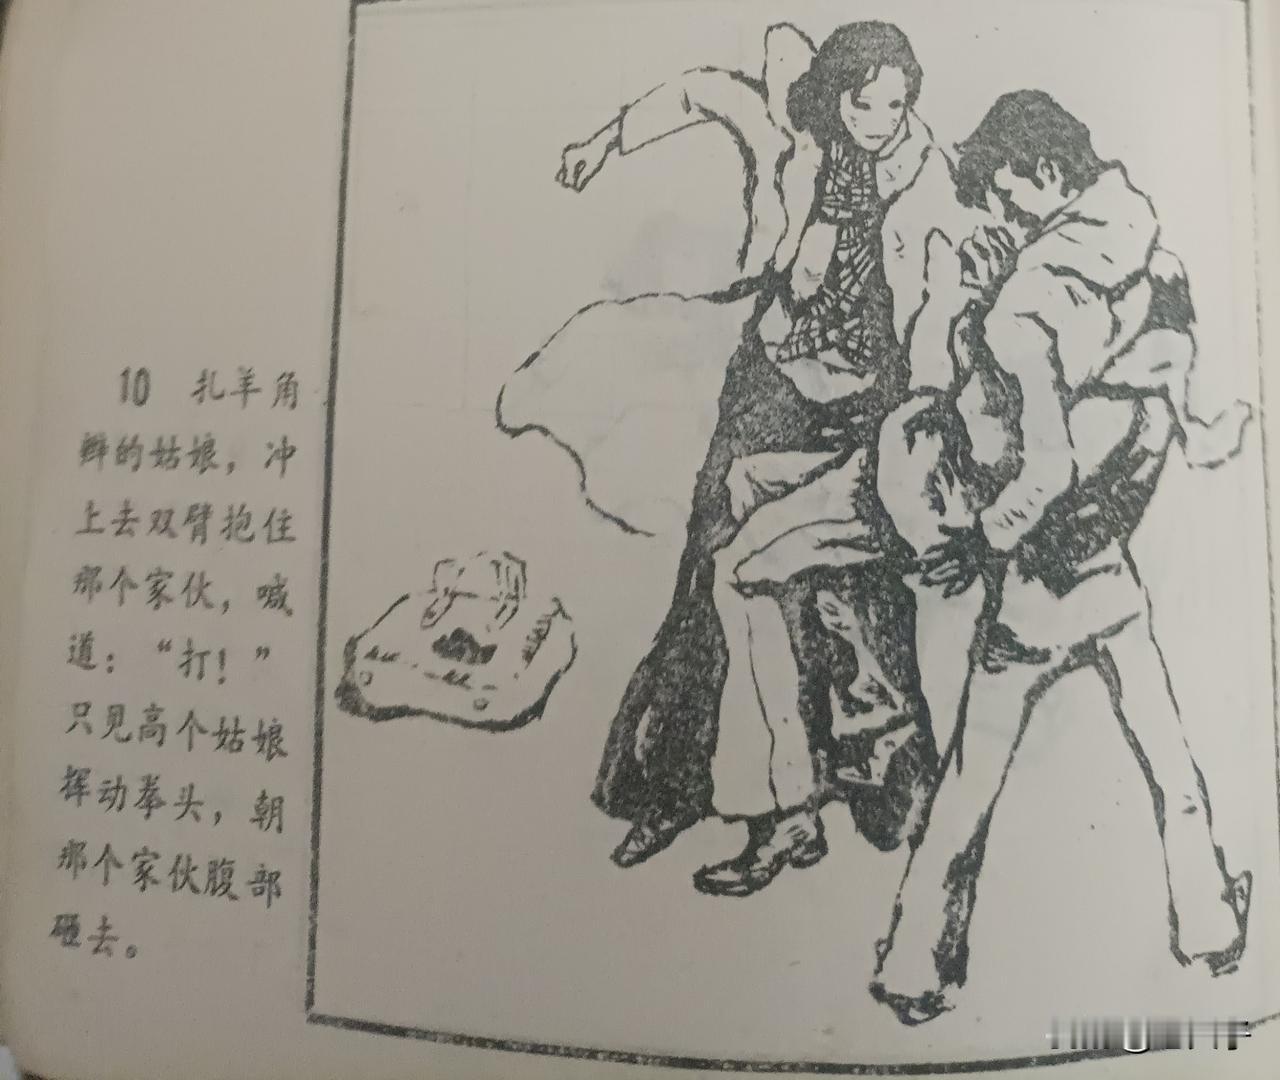 10 扎羊角
辫的姑娘，冲
上去双臂抱住
那个家伙，喊
道：“打！”
只见高个姑娘
挥动拳头，朝
那个家伙腹部
砸去。